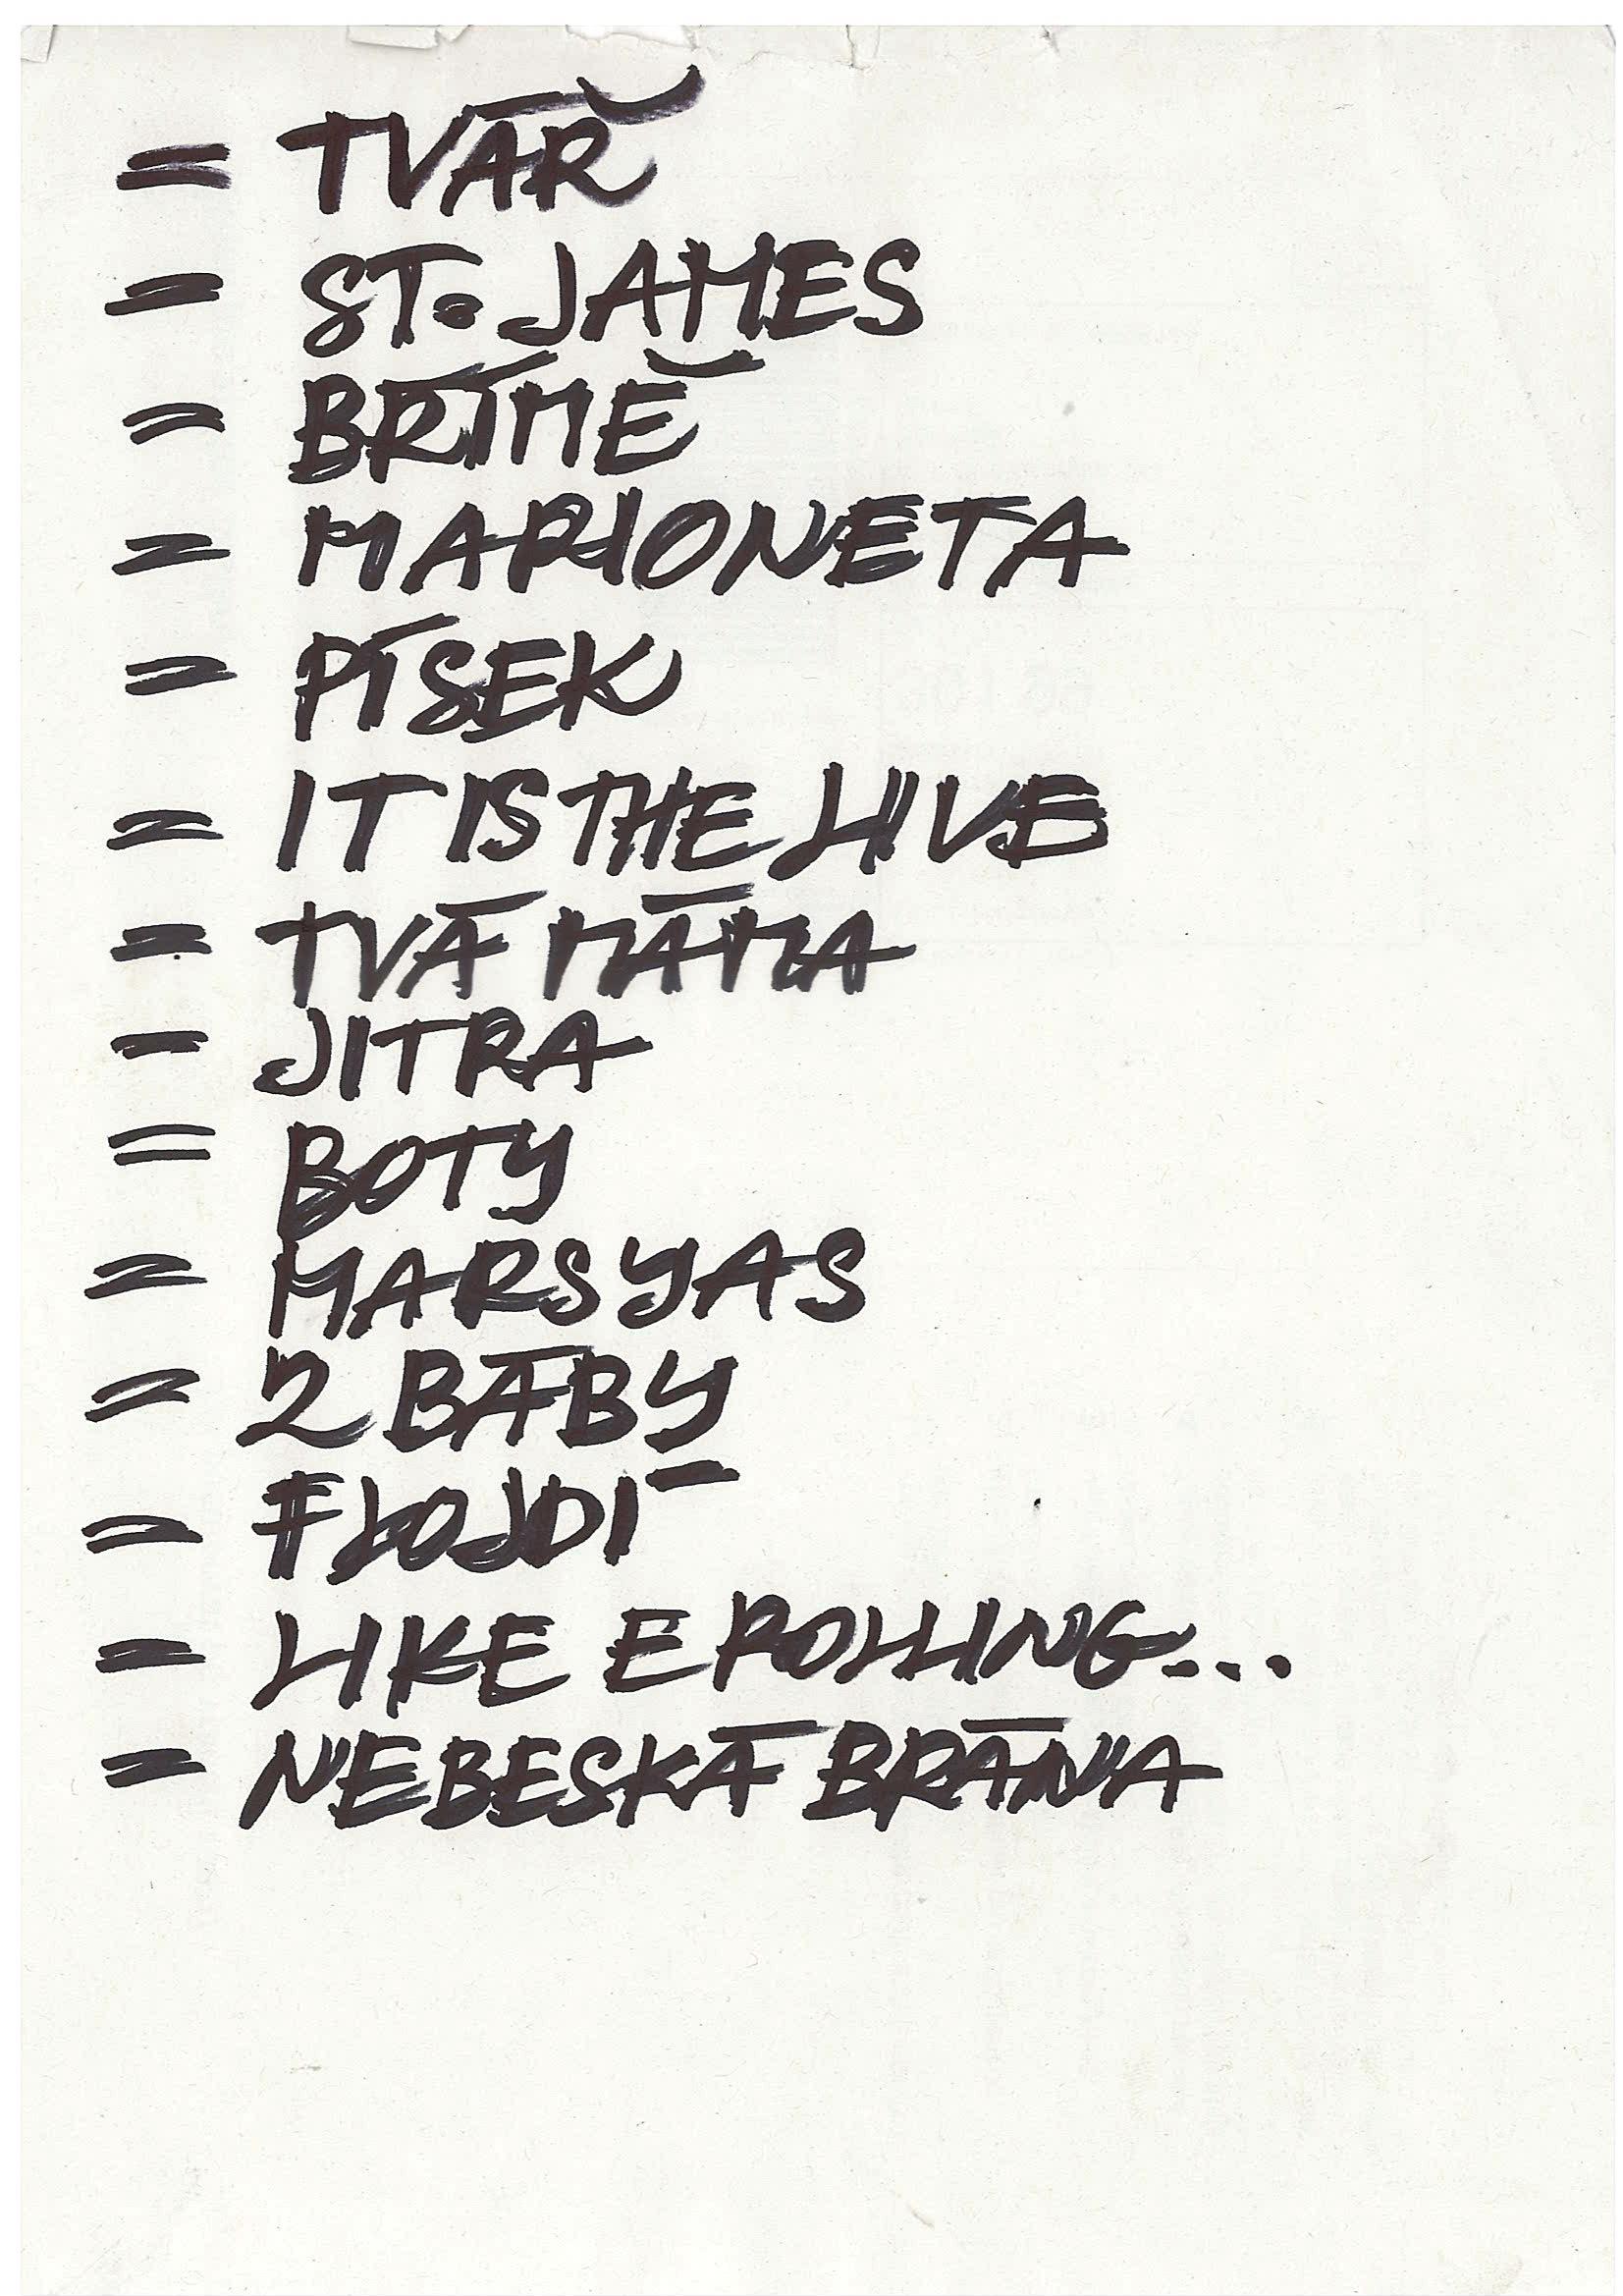 = TVÁŘ
= ST. JAMES
= BŘÍMĚ
= MARIONETA
= PÍSEK
= IT IS THE LIVE
= TVÁ MÁMA
= JITRA
= BOTY
= MARSYAS
= 2 BÁBY
= FLOJDÍ
= LIKE E ROLLING...
= NEBESKÁ BRÁNA